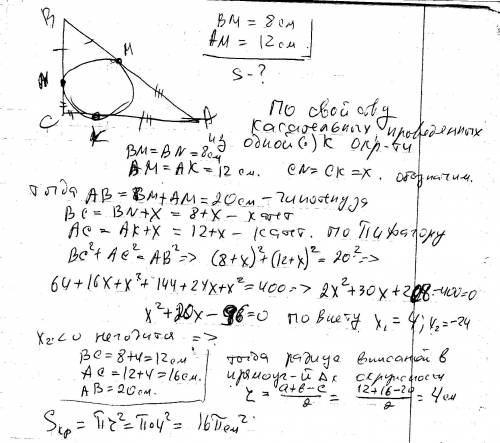 B
M
N
C
K
A
BM = 8см
AM = 12см.
S-?
По свойству
касательных проведенных
из одной (·) к окр-ти
BM = BN = 8см
AM = AK = 12 см. CN = CK = X. обозначим.
тогда AB = BM + AM = 20см - гипотнуза
BC = BN + X = 8 + X - катет
AC = AK + X = 12 + X - катет. по Пифагору
BC² + AC² = AB² => (8+X)² + (12+X)² = 20² =>
64 + 16X + X² + 144 + 24X + X² = 400 => 2X² + 30X + 208 - 400 = 0
X² + 20X - 96 = 0 по виету X₁ = 4; X₂ = -24
X₂ < 0 негодится =>
BC = 8+4 = 12см
AC = 12+4 = 16см.
AB = 20см.
тогда радиус вписаной в
прямоуг-й Δк окружности
r = (a+b-c)/2 = (12+16-20)/2 = 4см
Sкр = πr² = π·4² = 16π см²